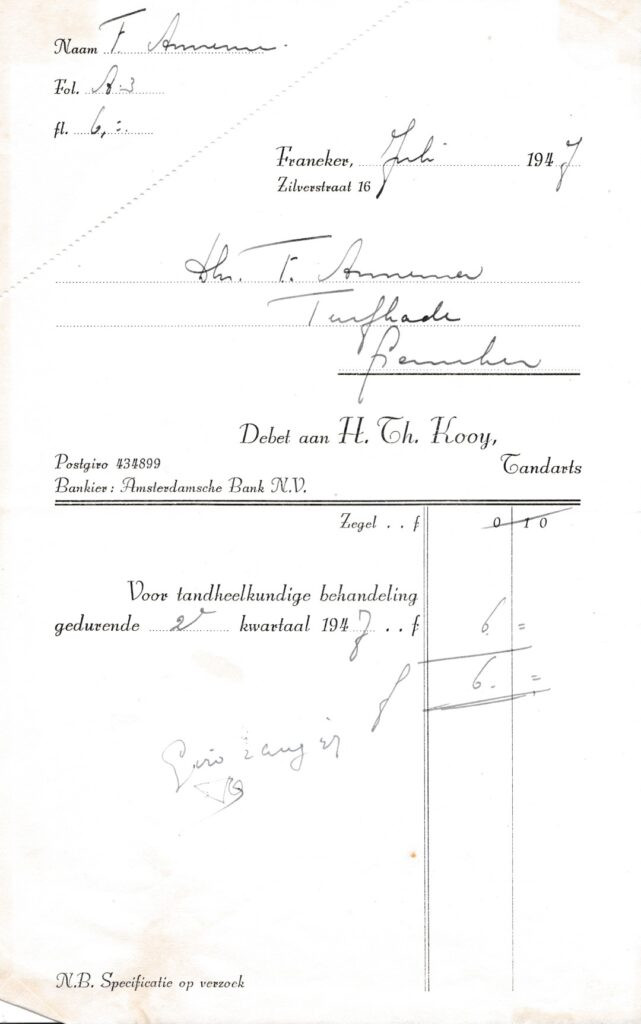 Naam F. Annema.
Fol. A-3
fl. 6,=
Franeker, Juli 1947
Zilverstraat 16
Dhr. F. Annema
Turfkade
Franeker
Debet aan H. Th. Kooy,
Postgiro 434899
Tandarts
Bankier: Amsterdamsche Bank N.V.
Zegel . . f 0 10
Voor tandheelkundige behandeling
gedurende 2e kwartaal 1947 . . f 6. =
f 6. =
Giro 2 aug 47
N.B. Specificatie op verzoek